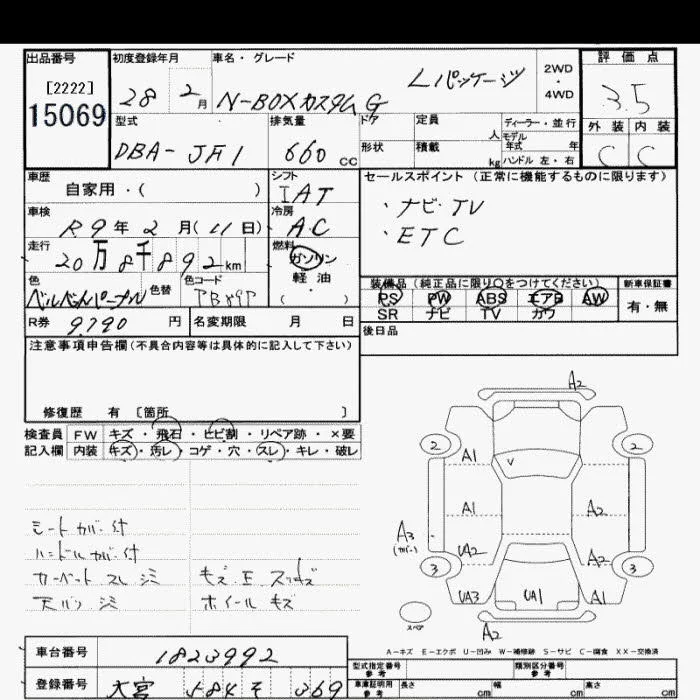 出品番号
[2222]
15069
初度登録年月
28 2月
車名・グレード
N-BOXカスタムG Lパッケージ
2WD
・
4WD
評価点
3.5
外装 内装
C C
型式
DBA-JF1
排気量
660cc
ドア
形状
定員
人
積載
kg
ディーラー・並行
モデル
年式 年
ハンドル 左・右
車歴
自家用・( )
シフト
IAT
車検
R9年2月(11日)
冷房
AC
走行
20万8千892km
燃料
ガソリン
軽油
( )
色
色替
色コード
R券
9790円
名変期限 月 日
セールスポイント(正常に機能するものに限ります)
・ナビ・TV
・ETC
装備品(純正品に限り○をつけてください)
PS PW ABS エアB AW
SR ナビ TV カワ
新車保証書
有・無
後日品
注意事項申告欄(不具合内容等は具体的に記入して下さい)
修復歴 有 [箇所 ]
検査員 FW キズ・飛石・ヒビ割・リペア跡・×要
記入欄 内装 キズ・汚レ・コゲ・穴・スレ・キレ・破レ
シートカバー付
ハンドルカバー付
カーペット スレ シミ
天バリ シミ
ホイール キズ
A2
2 2
A1
V
A1 A2
A3
(カバー)
UA2 A2
3 3
UA3 UA1 A1
スペア
A2
A-キズ E-エクボ U-凹み W-補修跡 S-サビ C-腐食 XX-交換済
車台番号
1823992
登録番号
大宮 584 そ 369
型式指定番号
参考
類別区分番号
参考
車庫証明用
参考
長さ cm 幅 cm 高さ cm